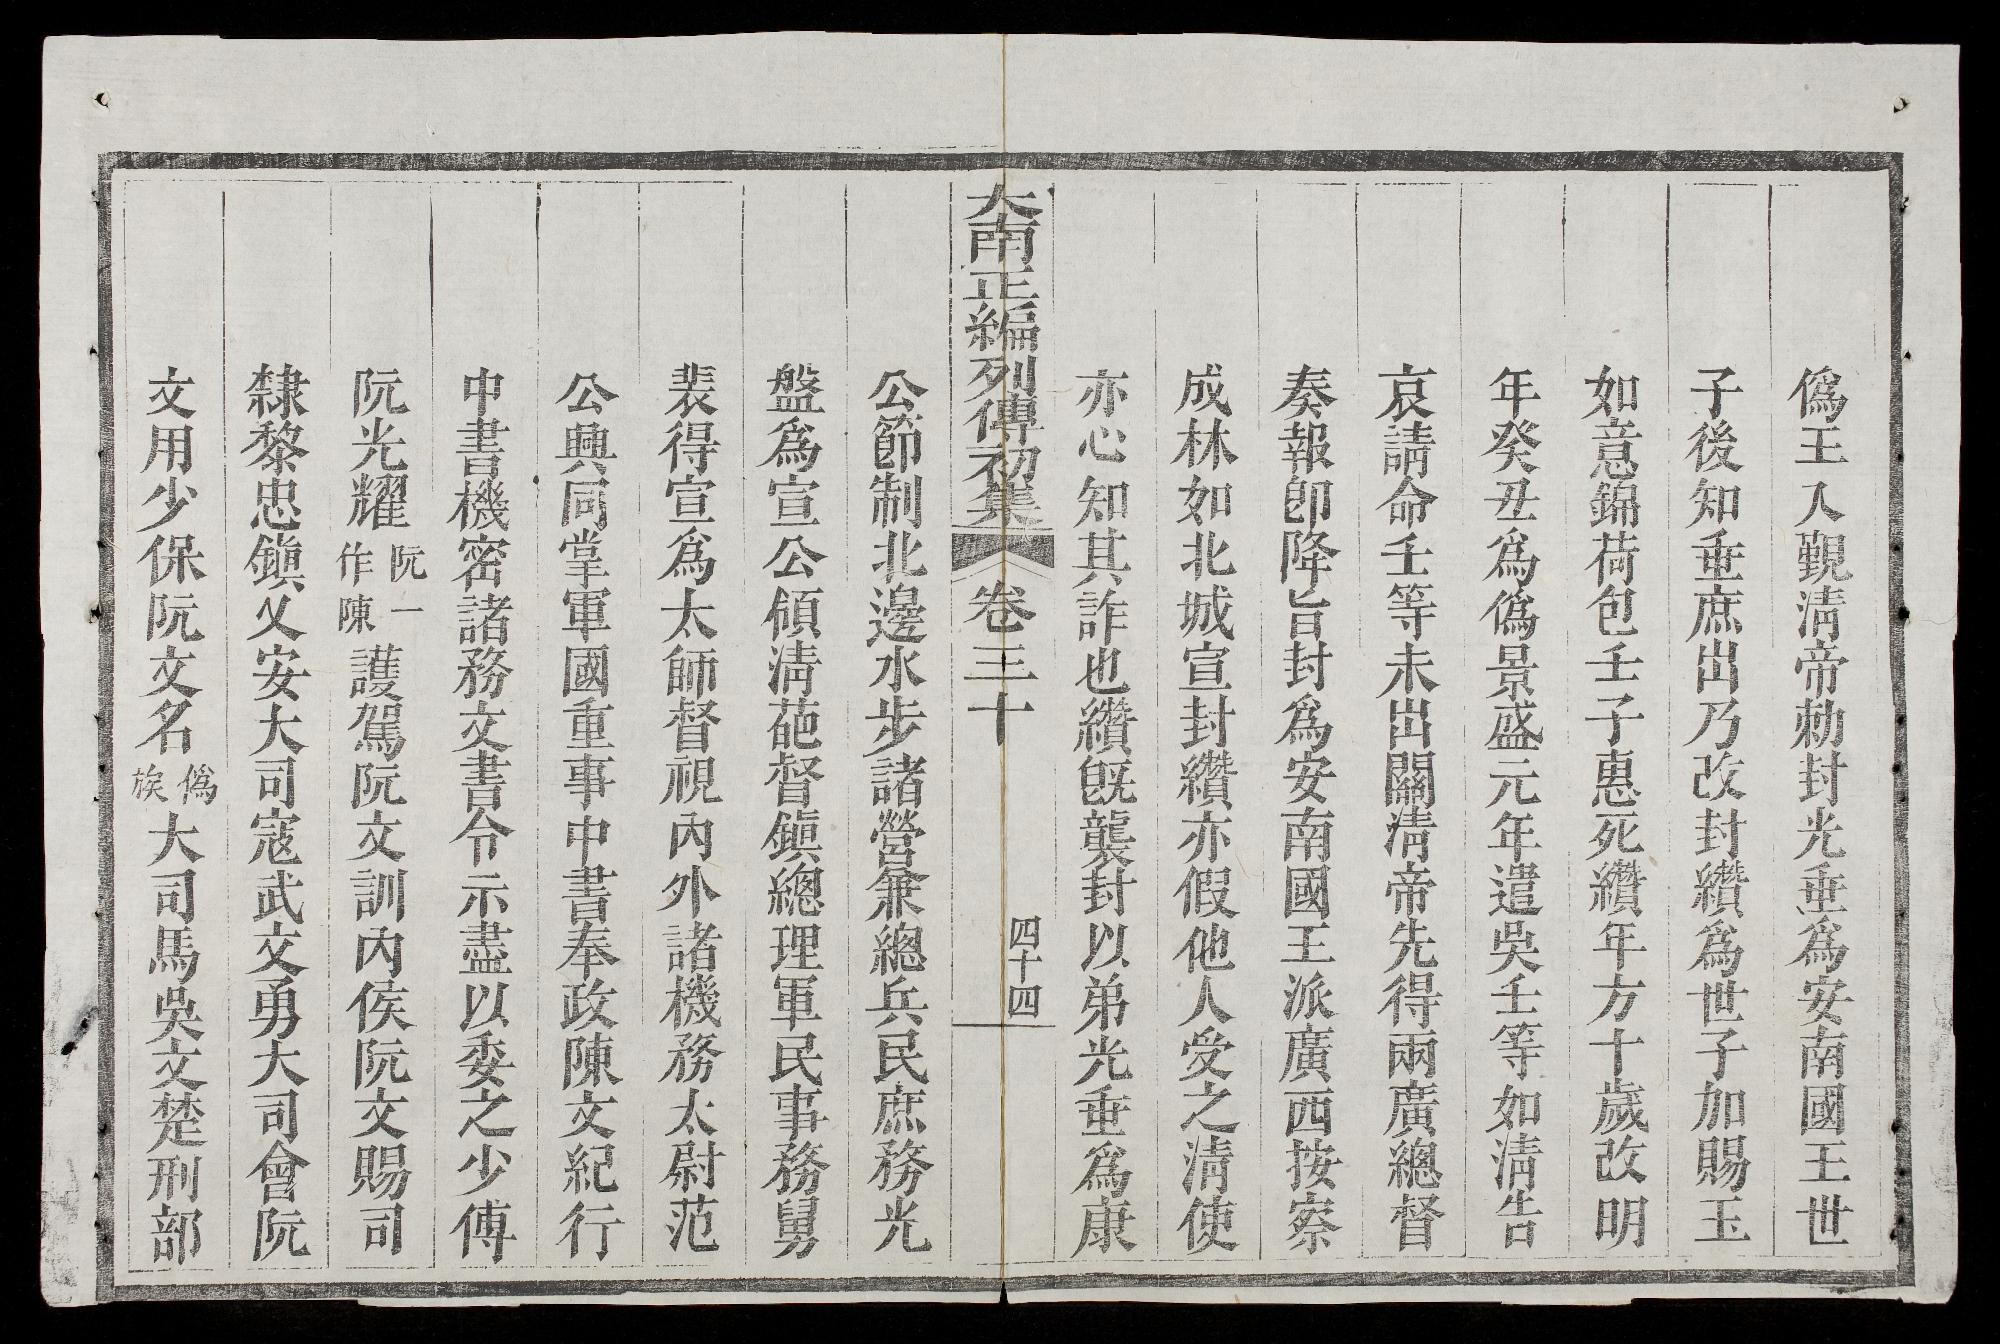 偽王入覲清帝勅封光垂為安南國王世
子後知垂庶出乃改封纘為世子加賜玉
如意錦荷包壬子惠死纘年方十歲改明
年癸丑為偽景盛元年遣吳壬等如清告
哀請命壬等未出關清帝先得兩廣總督
奏報卽降旨封為安南國王派廣西按察
成林如北城宣封纘亦假他人受之清使
亦心知其詐也纘旣襲封以弟光垂為康
大南正編列傳初集 卷三十 四十四
公節制北邊水步諸營兼總兵民庶務光
盤為宣公領清葩督鎭總理軍民事務舅
裴得宣為太師督視內外諸機務太尉范
公興同掌軍國重事中書奉政陳文紀行
中書機密諸務文書令示盡以委之少傅
阮光耀阮一作陳護駕阮文訓內侯阮文賜司
隸黎忠鎭乂安大司寇武文勇大司會阮
文用少保阮文名偽族大司馬吳文楚刑部